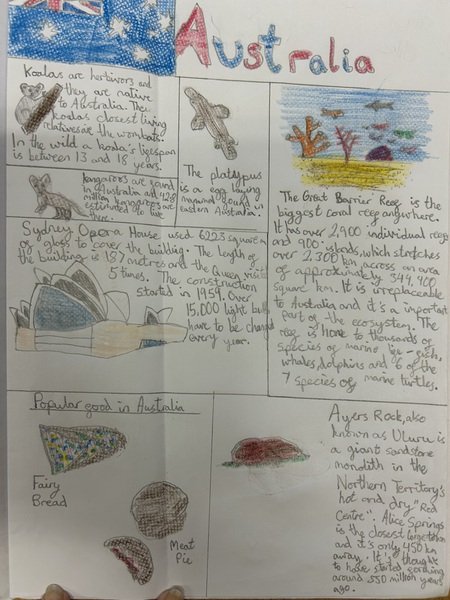 Australia
Koalas are herbivors and
they are native
to Australia. The
koalas closest living
relatives are the wombats.
In the wild a koala's lifespan
is between 13 and 18 years.
Kangaroos are found
in Australia and 42.8
million kangaroos are
estimated to live
there.
The platypus
is a egg laying
mammal found in
eastern Australia.
The Great Barrier Reef is the
biggest coral reef anywhere.
It has over 2,900 individual reefs
and 900 islands, which stretches
over 2,300 km across an area
of approximately 349,400
square km. It is irreplaceable
to Australia and it's a important
part of the ecosystem. The
reef is home to thousands of
species of marine life - fish,
whales, dolphins and 6 of the
7 species of marine turtles.
Sydney Opera House used 6223 square m
of glass to cover the building. The length of
the building is 187 metres and the Queen visited
5 times. The construction
started in 1959. Over
15,000 light bulbs
have to be changed
every year.
Popular food in Australia
Fairy
Bread
Meat
Pie
Ayers Rock, also
known as Uluru is
a giant sandstone
monolith in the
Northern Territory's
hot and dry "Red
Centre". Alice Springs
is the closest large town
and it's only 450 km
away. It's thought
to have started forming
around 550 million years
ago.